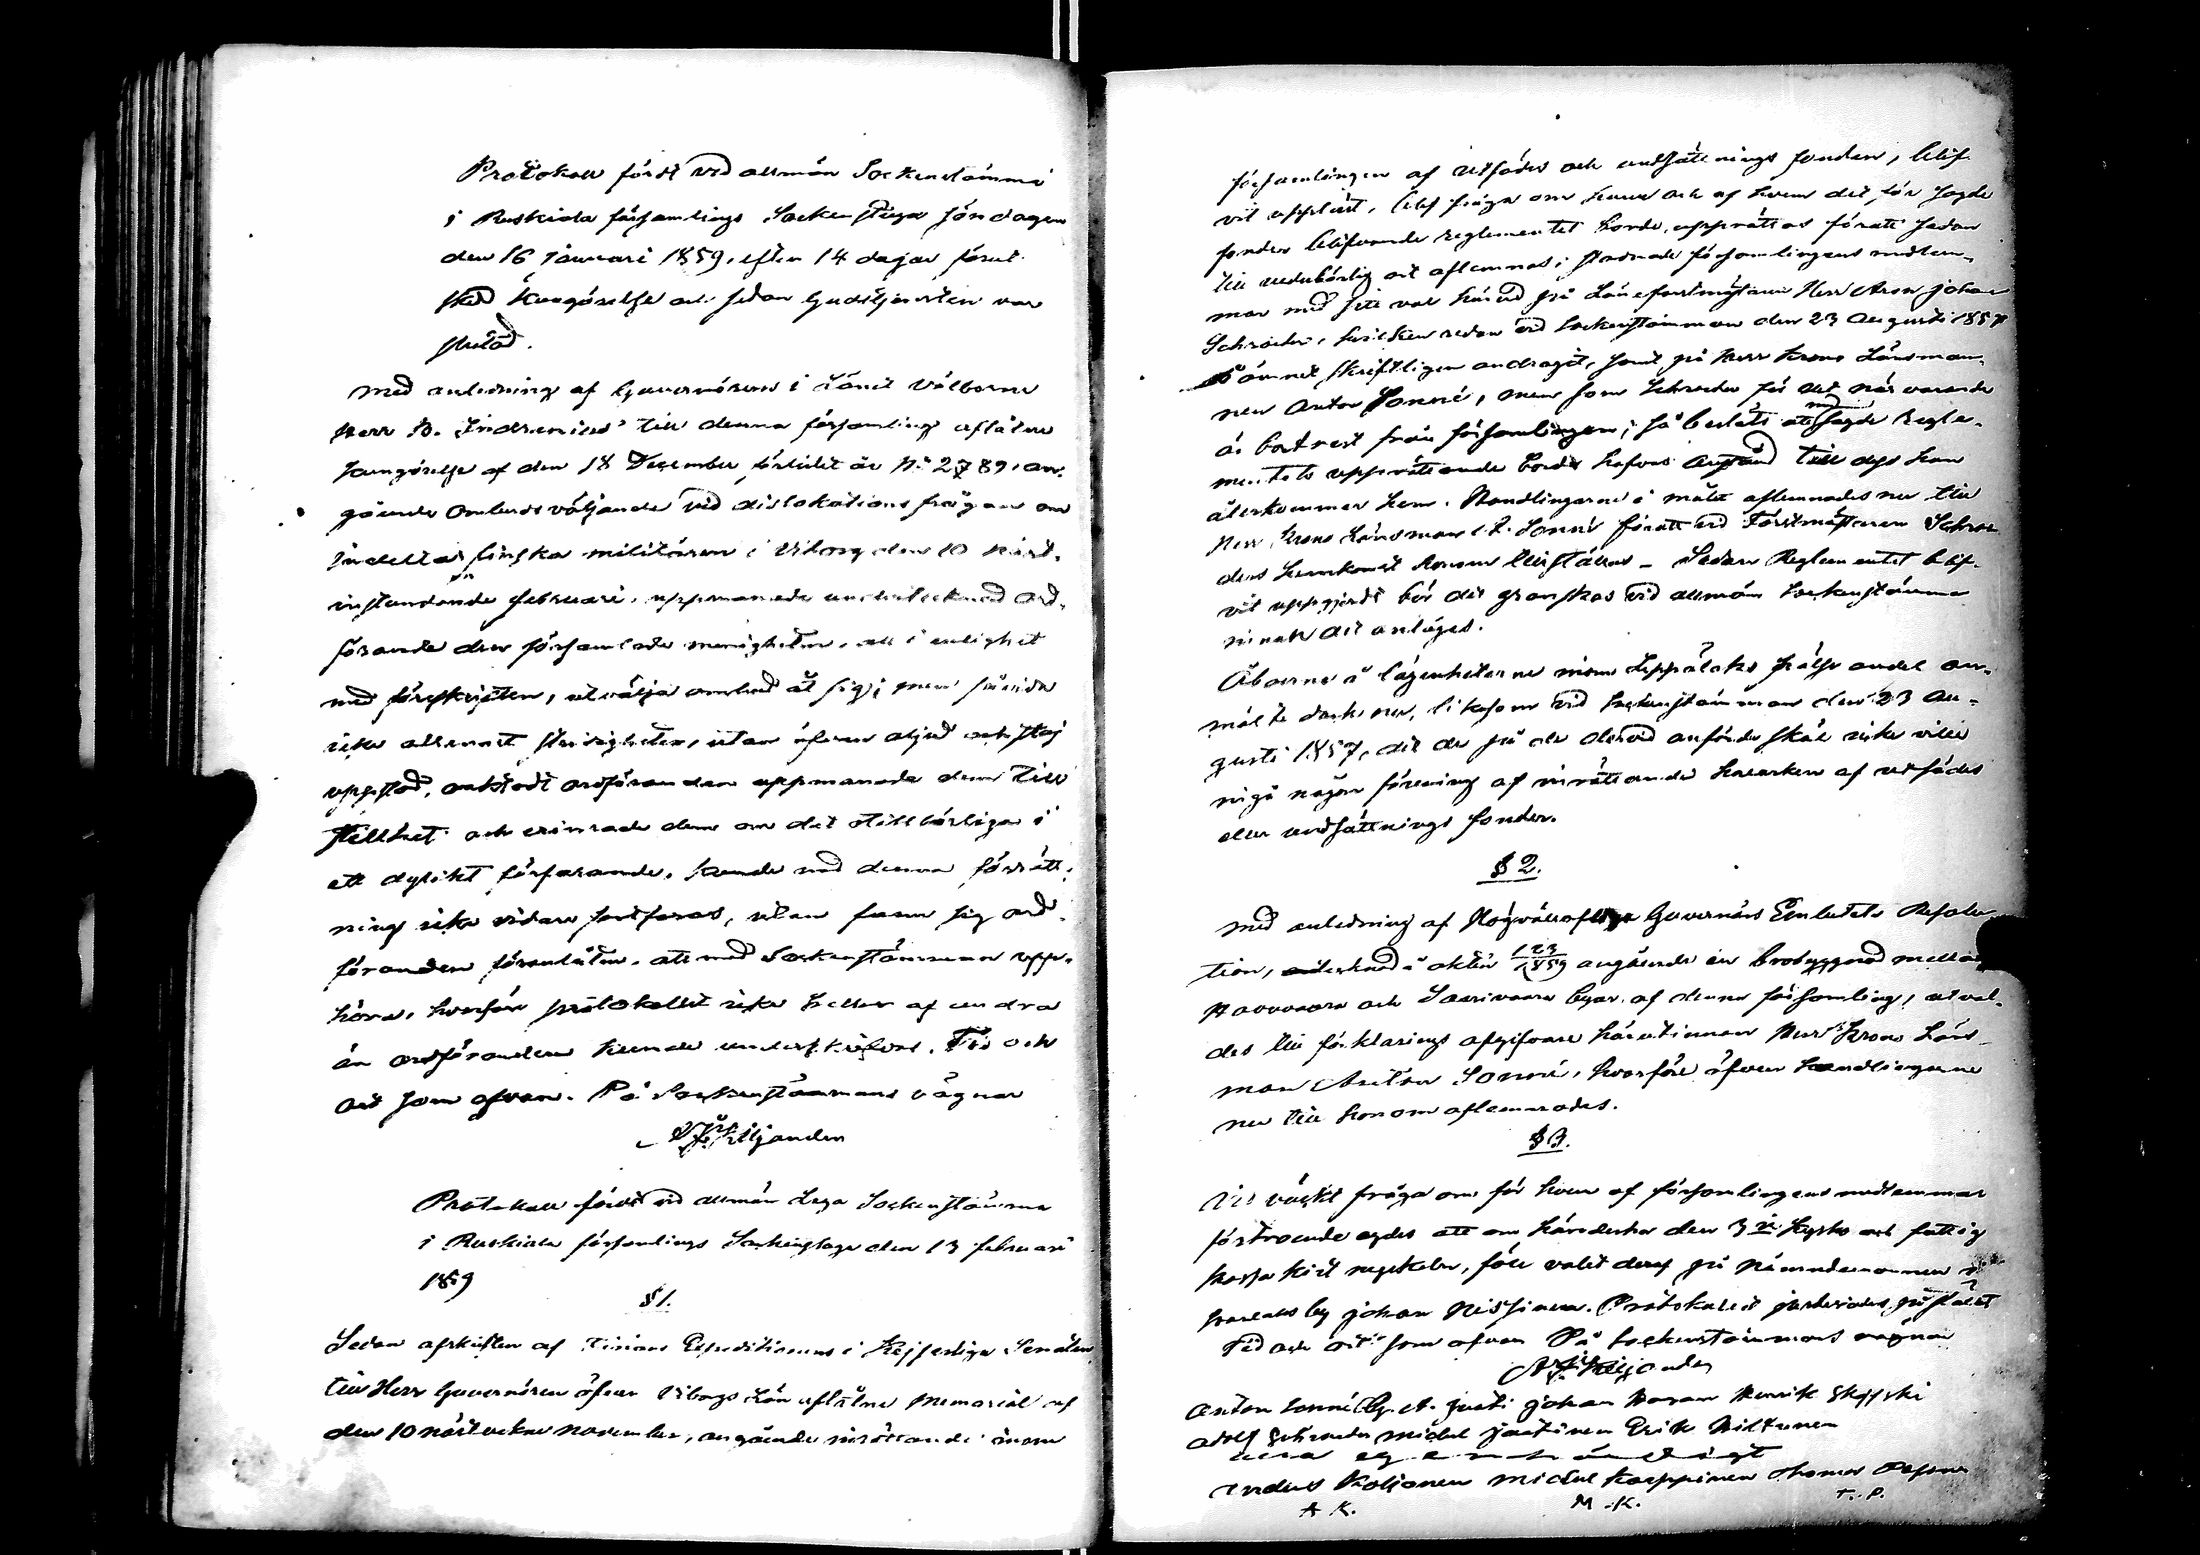 Protokoll fördt vid allmän Sockenstämma
i Ruskiala församlings Sockenstuga söndagen
den 16 Januari 1859, efter 14 dagar förut
skedd kungörelse och sedan Gudstjensten var
slutad.
Med anledning af Guvernörens i Länet Välborne
Herr B. Indrenius' till denna församling aflåtne
kungörelse af den 18 December förlidet år No 2789, an-
gående Ombuds väljande vid dislokations frågan om
Indelta finska militären i Viborg den 10 näst-
instundande Februari, uppmanade undertecknad ord-
förande den församlade menigheten, att i enlighet
med föreskriften, utvälja ombud åt sig; men som
icke allenast stridigheter, utan äfven oljud och stoj
uppstod, oaktadt ordföranden uppmanade dem till
stillhet och erinrade dem om det otillbörliga i
ett dylikt förfarande, kunde med denna förrätt-
ning icke vidare fortfaras, utan fann sig ord-
föranden föranlåten, att med Sockenstämman upp-
höra, hvarför protokollet icke heller af andra
än ordföranden kunde underskrifvas. Tid och
ort som ofvan. På Sockenstämmans vägnar
Hiljander
Protokoll fördt vid allmän Laga Sockenstämma
i Ruskiala församlings Sockenstuga den 13 Februari
1859
§ 1.
Sedan afskriften af Finans Expeditionens i Kejserliga Senaten
till Herr Guvernören öfver Viborgs Län aflåtne Memorial af
den 10 nästvekne November, angående inrättande inom
församlingen af utsädes och undsättnings fonden, blif-
vit uppläst, blef fråga om huru och af hvem det för sagde
fonder blifvande reglementet borde upprättas föratt sedan
till vederbörlig ort aflemnas; stadnade församlingens medlem-
mar med sitt val härvid på Läneforstmästaren Herr Aron Johan
Schroeder, hvilken redan vid Sockenstämman den 23 Augusti 1857
i ämnet skriftligen andragit, samt på Herr Krono Länsman-
nen Anton Lonné, men som Schroeder för det närvarande
är bortrest från församlingen; så beslöts att med sagde Regle-
mentets upprättande borde hafvas anstånd till dess han
återkommer hem. Handlingarne i målet aflemnades nu till
Herr Krono Länsman A. Lonné föratt vid Forstmästaren Schroe-
ders hemkomst honom tillställas – Sedan Reglementet blif-
vit uppgjordt bör det granskas vid allmän Sockenstämma
innan det antages.
Åboerne å lägenheterne inom Leppälaks frälse andel an-
mälte dock nu, likasom vid Sockenstämman den 23 Au-
gusti 1857, att de på de dervid anförde skäl icke ville
ingå någon förening af inrättande hvarken af utsädes
eller undsättnings fonder.
§ 2.
Med anledning af Högvällofliga Guvernörs Embetets Resolu-
tion, å aktén 123/1859 angående en brobyggnad mellan
Havuvaara och Saarivaara byar af denna församling, utval-
des till förklarings afgifvare häruti Herr Krono Läns-
man Anton Lonné, hvarföre äfven handlingarne
nu till honom aflemnades.
§ 3.
Vid väckt fråga om för hvem af församlingens medlemmar
förtroende egdes att om händerhafva den 3:ie Kyrko och fattig
kassa kist nyckeln, föll valet derå på nämndemannen
by Johan Nissinen. Protokollet justerades på stället
Tid och ort som ofvan På Sockenstämmans vägnar
Hiljander
Anton Lonné G. A. Johan Henrik
Adolf Schroeder Michel Erik Kiltunen
Anders Koljonen Michel Karppinen Thomas
A K. M. K. T. P.